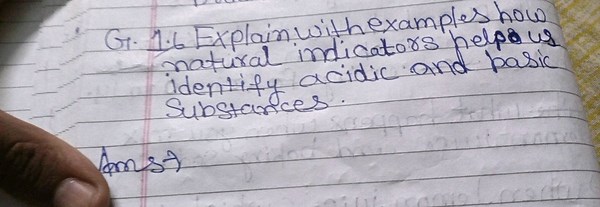 G. 1.6 Explain with examples how
natural indicators helps us
identify acidic and basic
Substances.
Ans→